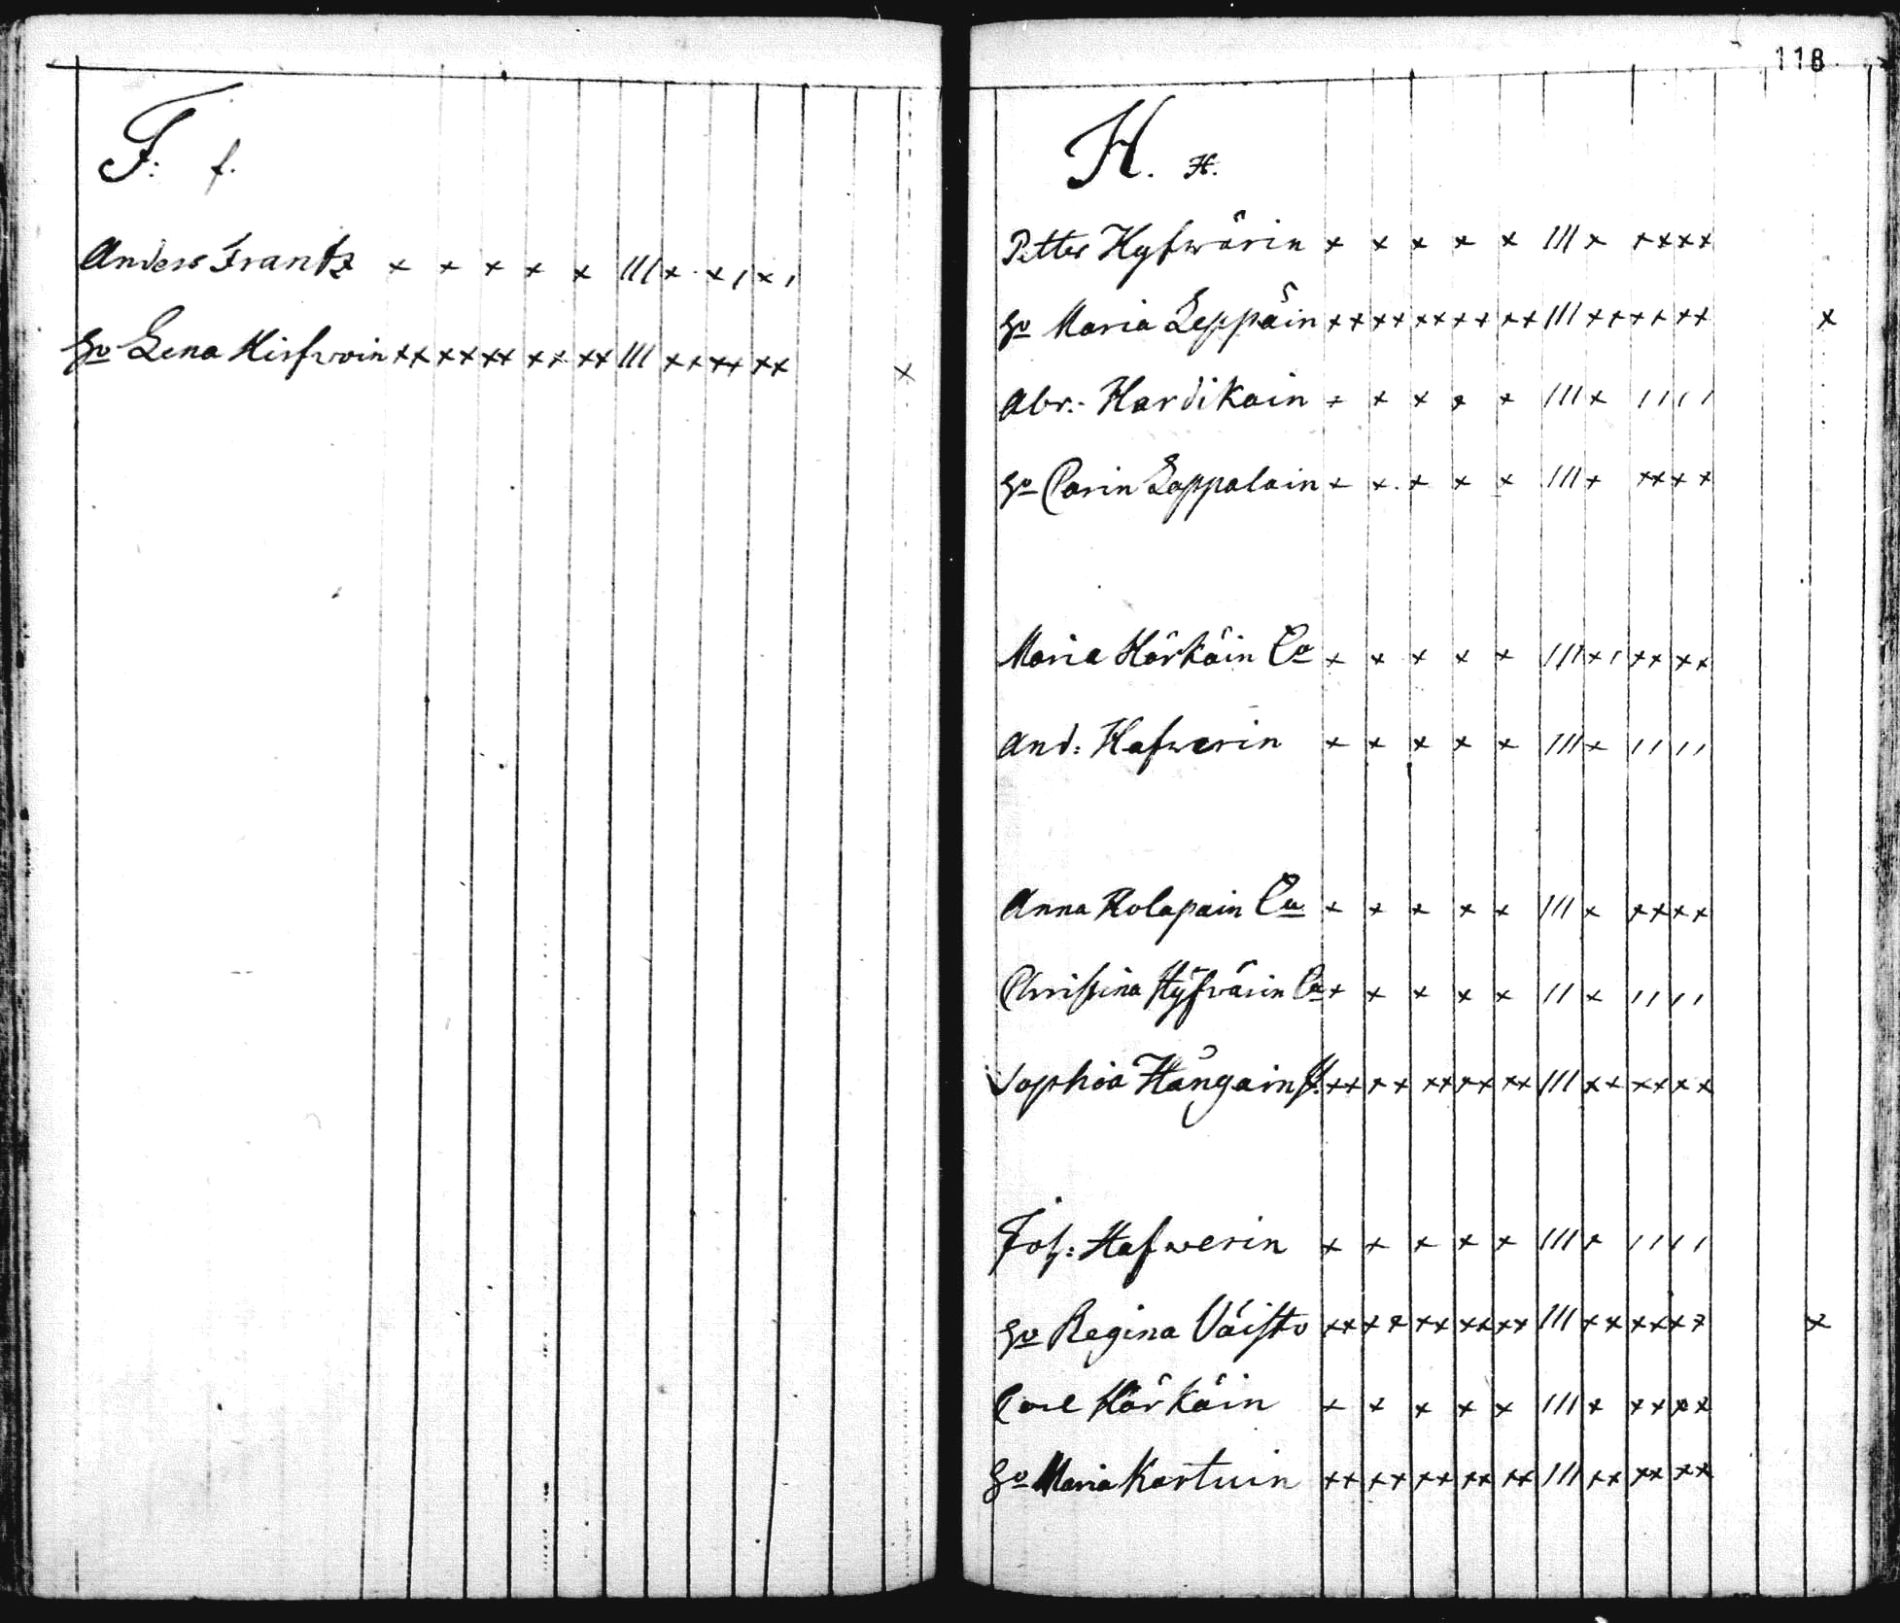 F: f.
Anders Frantz x x x x x III x x ı x ı
Hu Lena Hirfwoin xx xx xx xx xx III xx xx xx x
118
H. H.
Petter Hyfwärin x x x x x III x xx xx
Hu Maria Leppäin xx xx xx xx xx III xx xx xx x
Abr: Hardikain x x x x x III x ıı ıı
Hu Carin Loppalain x x x x x III x xx xx
Maria Härkäin Ea x x x x x III x ı xx xx
And: Hafwerin x x x x x III x ıı ıı
Anna Kolapain Ea x x x x x III x xx xx
Christina Hÿfvärin Ea x x x x x II x ıı ıı
Sophia Hångain xx xx xx xx xx III xx xx xx
Joh: Hafwerin x x x x x III x ıı ıı
Hu Regina Väisto xx xx xx xx xx III xx xx xx x
Carl Härkäin x x x x x III x xx xx
Hu Maria Kartuin xx xx xx xx xx III xx xx xx